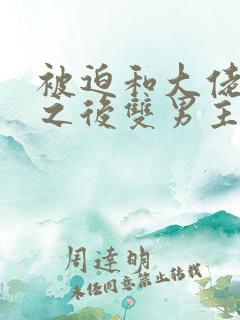 被迫和大佬
之後雙男主
周達明
未經同意禁止轉載